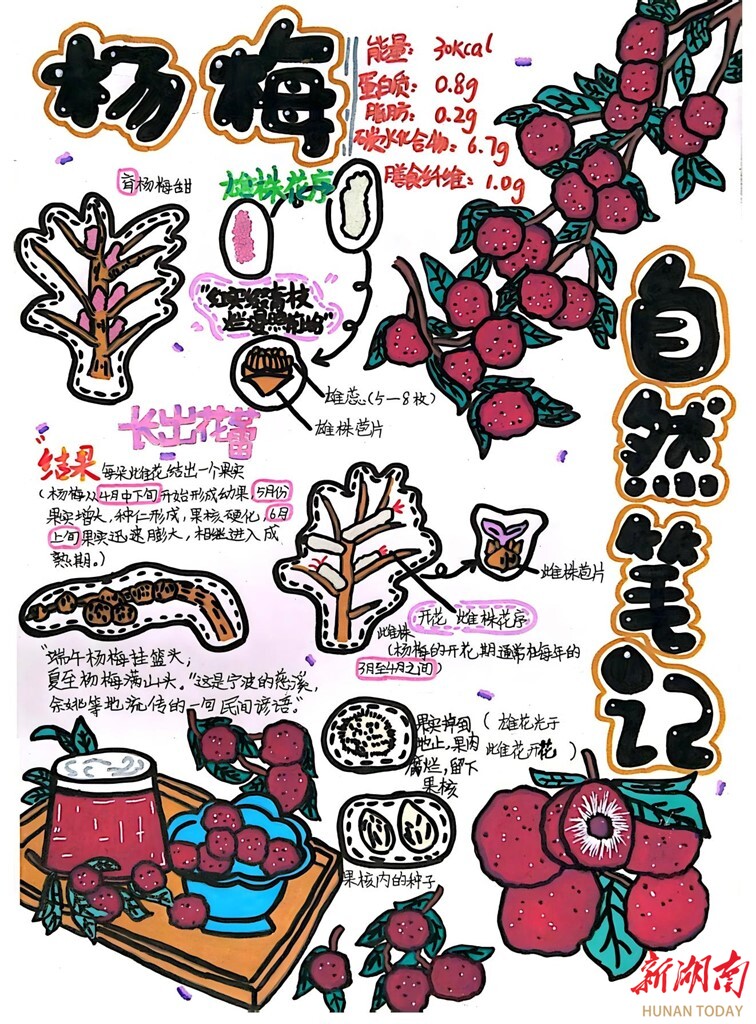 杨梅
能量: 30Kcal
蛋白质: 0.8g
脂肪: 0.2g
碳水化合物: 6.7g
膳食纤维: 1.0g
自然笔记
育杨梅甜
雄株花序
"红实缀青枝
烂漫照前坞"
雄蕊(5—8枚)
雄株苞片
长出花蕾
"结果 每朵雌花结出一个果实
(杨梅从4月中下旬开始形成幼果,5月份
果实增大,种仁形成,果核硬化,6月
上旬果实迅速膨大,相继进入成
熟期。)
雌株苞片
开花 雌株花序
雌株
(杨梅的开花期通常在每年的
3月至4月之间)
"端午杨梅挂篮头;
夏至杨梅满山头。"这是宁波的慈溪,
余姚等地流传的一句民间谚语。"
果实掉到
地上,果肉
腐烂,留下
果核
(雄花先于
雌花开花)
果核内的种子
新湖南
HUNAN TODAY